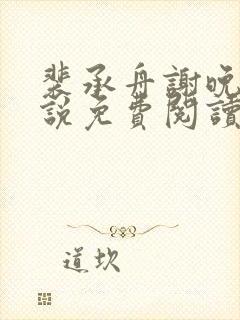 裴承舟謝晚
說免費閱讀
道坎